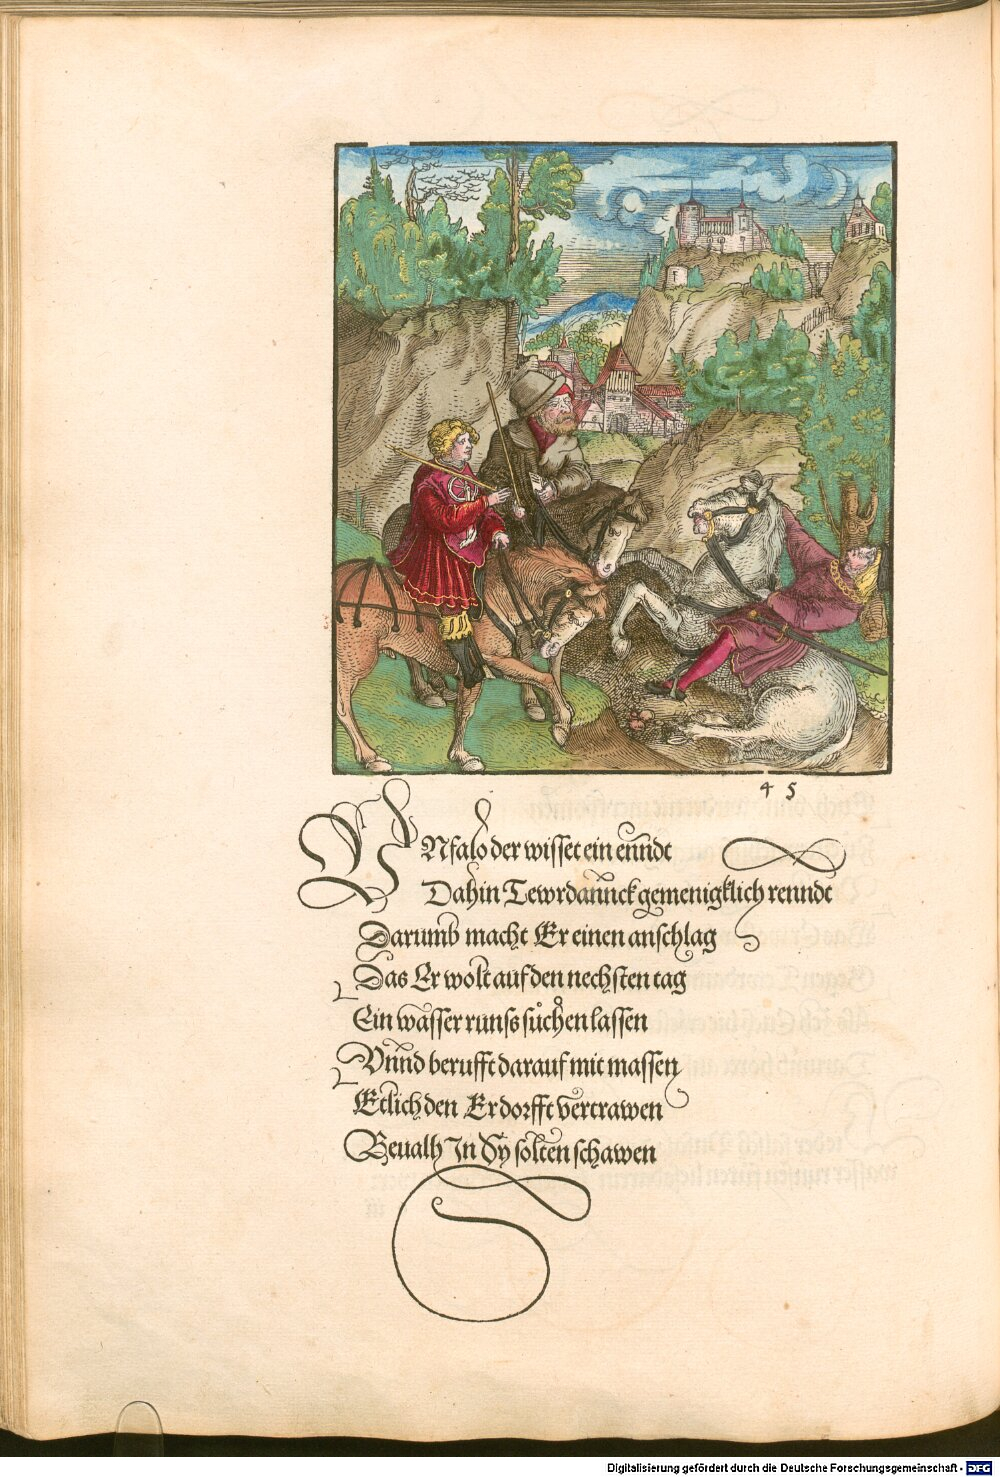 45
VNfalo der wisset ein ennndt
Dahin Tewrdannck gemenigklich renndt
Darumb macht Er einen anschlag
Das Er wolt auf den nechsten tag
Ein wasser runſs sůchen lassen
Vnnd berufft darauf mit massen
Etlich den Er dorfft vertrawen
Beualh In Sy solten schawen
Digitalisierung gefördert durch die Deutsche Forschungsgemeinschaft - DFG